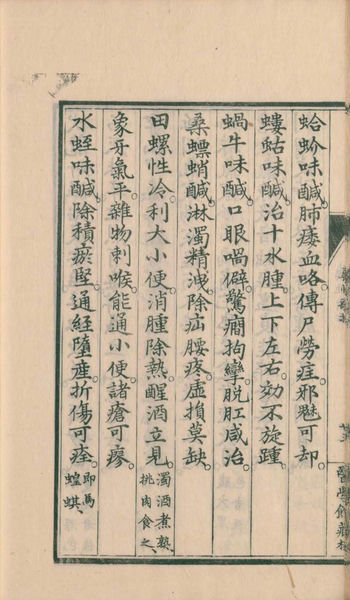 蛤蚧味鹹。肺痿血咯。傳尸勞疰。邪魅可却。
螻蛄味鹹。治十水腫。上下左右。効不旋踵。
蝸牛味鹹。口眼喎僻。驚癇拘攣。脫肛咸治。
桑螵蛸鹹。淋濁精洩。除疝腰疼。虛損莫缺。
田螺性冷。利大小便。消腫除熱。醒酒立見。濁酒煮熟、挑肉食之、
象牙氣平。雜物刺喉。能通小便。諸瘡可瘳。
水蛭味鹹。除積瘀堅。通經墮產。折傷可痊。即馬蝗蜞、